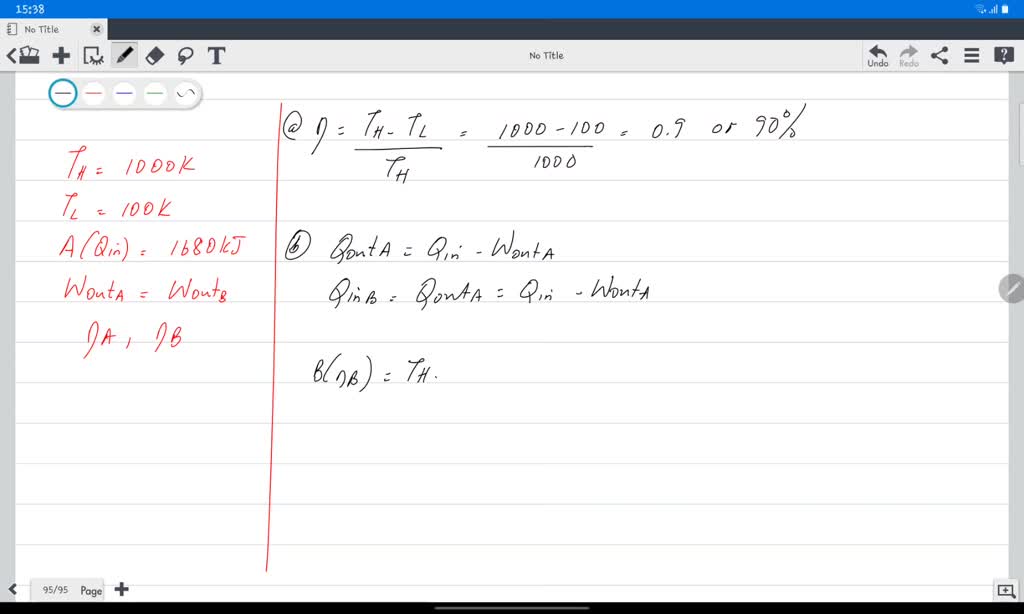 15:38
No Title
T
No Title
Undo
Redo
T_H = 1000K
T_L = 100K
A(Qin) = 1680kJ
WoutA = WoutB
ηA, ηB
ⓐ η = T_H - T_L / T_H = 1000 - 100 / 1000 = 0.9 or 90%
ⓑ QoutA = Qin - WoutA
QinB = QoutA = Qin - WoutA
B(ηB) = T_H.
95/95
Page